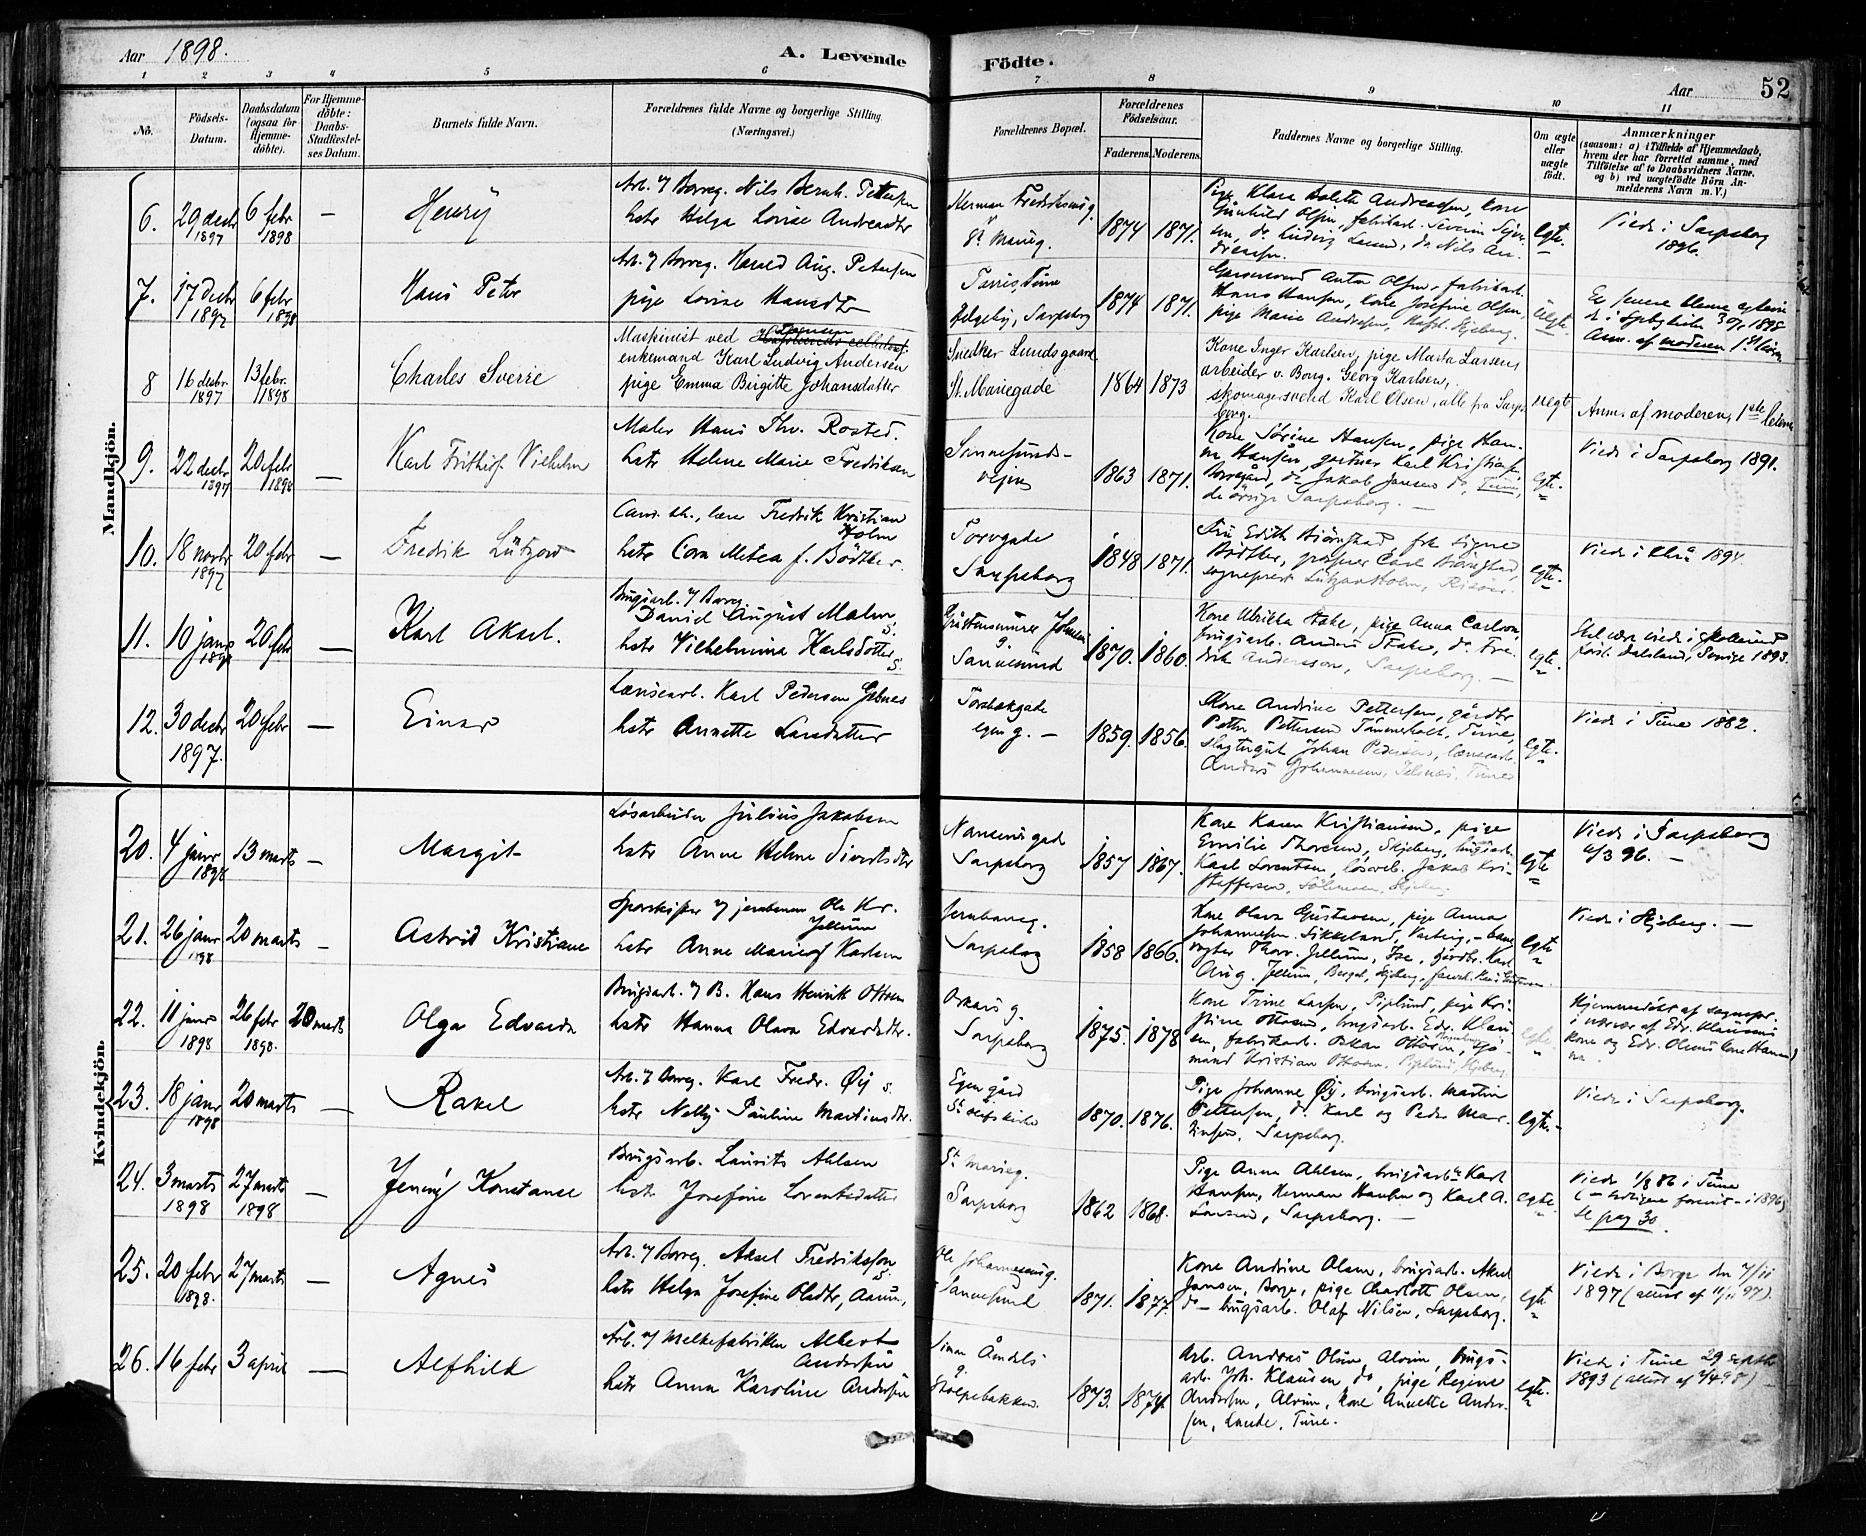 Aar 1898.
A. Levende
Födte.
Aar
52
1 2 3 4 5 6 7 8 9 10 11
No.
Födsels-
Datum.
Daabsdatum
(ogsaa for
Hjemme-
döbte).
For Hjemme-
döbte:
Daabs-
Stadfæstel-
ses Datum.
Barnets fulde Navn.
Forældrenes fulde Navne og borgerlige Stilling
(Næringsvei.)
Forældrenes Bopæl.
Forældrenes
Födselsaar.
Faderens.
Moderens.
Faddernes Navne og borgerlige Stilling.
Om ægte
eller
uægte
födt.
Anmærkninger
(saasom: a) i Tilfælde af Hjemmedaab,
hvem der har forrettet samme, med
Tilföielse af to Daabsvidners Navne.
og b) ved uægtefödte Börn An-
melderens Navn m. V.)
Mandkjön.
6. 29 decbr 1897
6 febr 1898
—
Henry
Arb. v/ Borreg. Nils Bernh. Pettersen
hstr Helga Lovise Andreasdtr
St. Marieg.
1874 1871.
Pige Klara Andreassen, kone
Gunhild Olsen, fabrikarb. Severin
egte.
Viede i Sarpsborg
1896.
7. 17 decbr 1897
6 febr 1898
Hans Peter
Arb. v/ Borreg. Harald Aug. Petersen
pige Lovise Hansdtr
Sarpsborg
1874 1871.
Anton Olsen, fabrikarb.
Hans Hansen, kone Josefine Olsen,
pige Marie Andersen, Skjeberg.
Uegte
Anm. af moderen
8 16 decbr. 1897
13 febr. 1898
Charles Sverre
Maskinist ved
enkemand Karl Ludvig Andersen
pige Emma Birgitte Johansdatter
Snedker Lundsgaard
St. Mariegade
1864 1873
Kone Inger Karlsen, pige Marta Larsen,
arbeider v. Borg. Georg Karlsen,
skomagersvend Karl Olsen, alle fra Sarps-
borg.
uegt
Anm. af moderen, 1ste leierm
9. 22 decbr 1897
20 febr 1898
—
Karl Frithiof Vilhelm
Maler Hans Thv. Rosted.
hstr Helene Marie Fredriksen
Sannesunds-
vejen
1863 1871.
Kone Sørine Hansen, pige Han-
na Hansen, gartner Karl Kristiansen
Borregård, do Jakob Jansen do, Tune,
de øvrige Sarpsborg. —
egte.
Viede i Sarpsborg 1891.
10. 18 novbr 1897
20 febr
—
Fredrik Lützow
Cand. th., lærer Fredrik Kristian
Holm
hstr Cora Metea f. Bødtker.
Torvgade
Sarpsborg
1848 1871.
Fru Edith Bjørnstad, frk Signe
Bødtker, Carl Bjørnstad,
sogneprest Lützow Holm, Risør.
egte.
1894.
11. 10 janr 1898
20 febr
—
Karl Aksel.
Brugsarb. v/ Borreg.
Daniel August Malm,
S.
hstr Vilhelmina Karlsdotter
S.
Sannesund
1870. 1860.
Kone Ulrikka Stake, pige Anna Carlson,
brugsarb. Anders Stake, do Fre-
drik Andersson, Sarpsborg. —
egte.
Skal være viede i
Dalsland, Sverige 1893.
12. 30 decbr 1897.
20 febr
—
Einar
Lænsearb. Karl Pedersen
hstr Annette Larsdatter
Torsbækgade
egen g. —
1859. 1856.
Kone Andrine Pettersen, gårdbr
Petter Pettersen Tømmerholt, Tune,
slagtergut Johan Pedersen, lænsearb.
Anders Johannessen, Tune
egte.
Viede i Tune 1882.
Kvindekjön.
20. 4 janr 1898
13 marts
—
Margit
Løsarbeider Julius Jakobsen
hstr Anne Helene Sivertsdtr
Nansens gade
Sarpsborg
1857 1867.
Kone Karen Kristiansen, pige
Emilie Thoresen, Skjeberg, brugsarb.
Karl Lorentsen, løsarb. Jakob Kri-
stoffersen, Skjeberg.
egte
Viede i Sarpsborg
6/3 96. —
21. 26 janr 1898
20 marts
—
Astrid Kristiane
Sporskifter v/ jernbanen Ole Kr.
Jellum
hstr Anne Marie Karlsen
Jernbaneg.
Sarpsborg
1858 1866.
Kone Olava Gustavsen, pige Anna
Johannesen Sikkeland, Varteig, bane-
vogter Thorv. Jellum, Ise, gårdbr. Karl
Aug. Jellum, Berget, Skjeberg,
egte
Viede i Skjeberg. —
22. 11 janr 1898
26 febr 1898.
20 marts
Olga Edvarda
Brugsarb. v/ B. Hans Henrik Ottosen
hstr Hanna Olava Edvardsdtr.
Oskars g.
Sarpsborg
1875. 1878
Kone Trine Larsen, Piplund, pige Kri-
stine Ottosen, brugsarb. Edv. Klau-
sen, fabrikarb. Oskar Ottosen, sjø-
mand Kristian Ottosen, Piplund, Skjeberg
egte
Hjemmedøbt af sognepr.
i nærvær af Edv. Klausens
kone og Edv. Olsens kone Hanna
23. 18 janr 1898
20 marts
—
Rakel
Arb. v/ Borreg. Karl Fredr. Øij s.
hstr Nelly Pauline Martinsdtr.
Egen gård
St. Olafs kirke
1870. 1876.
Pige Johanne Øij, brugsarb. Martin
Pettersen, do Karl og Peder Mar-
tinsen, Sarpsborg.
egte.
Viede i Sarpsborg.
24. 3 marts 1898
27 marts 1898
—
Jenny Konstanse
Brugsarb. Laurits Ahlsen
hstr Josefine Lorentsdatter
St. Marieg.
Sarpsborg
1862 1868.
Pige Anna Ahlsen, brugsarb. Karl
Hansen, Herman Hansen og Karl A.
Larsen, Sarpsborg. —
egte.
Viede 1/8 86 i Tune
Se pag 30.
25. 20 febr 1898.
27 marts
—
Agnes
Arb. v/ Borreg. Aksel Fredriksson
S.
hstr Helga Josefine Olsdtr,
Ole Johannesens g.
Sannesund
1871. 1877.
Kone Andrine Olsen, brugsarb. Aksel
Jansen, Borge, pige Charlotte Olsen,
do — brugsarb. Olaf Nilsen, Sarpsborg.
egte
Viede i Borge den 7/11
1897 (attest af 11/11 97).
26. 16 febr
3 april
—
Alfhild
Arb. v/ Melkefabriken Albert
Andersen
hstr Anna Karoline Andersen
Stolpebakken.
1873. 1874.
Arb. Andreas Olsen, Alvim, brugs-
arb. Joh. Klausen do, pige Regine
Andersen, Alvim, kone Annette Ander-
sen, Lande, Tune.
egte.
Viede i Tune 29 septbr
1893 (attest af 2/4 98)